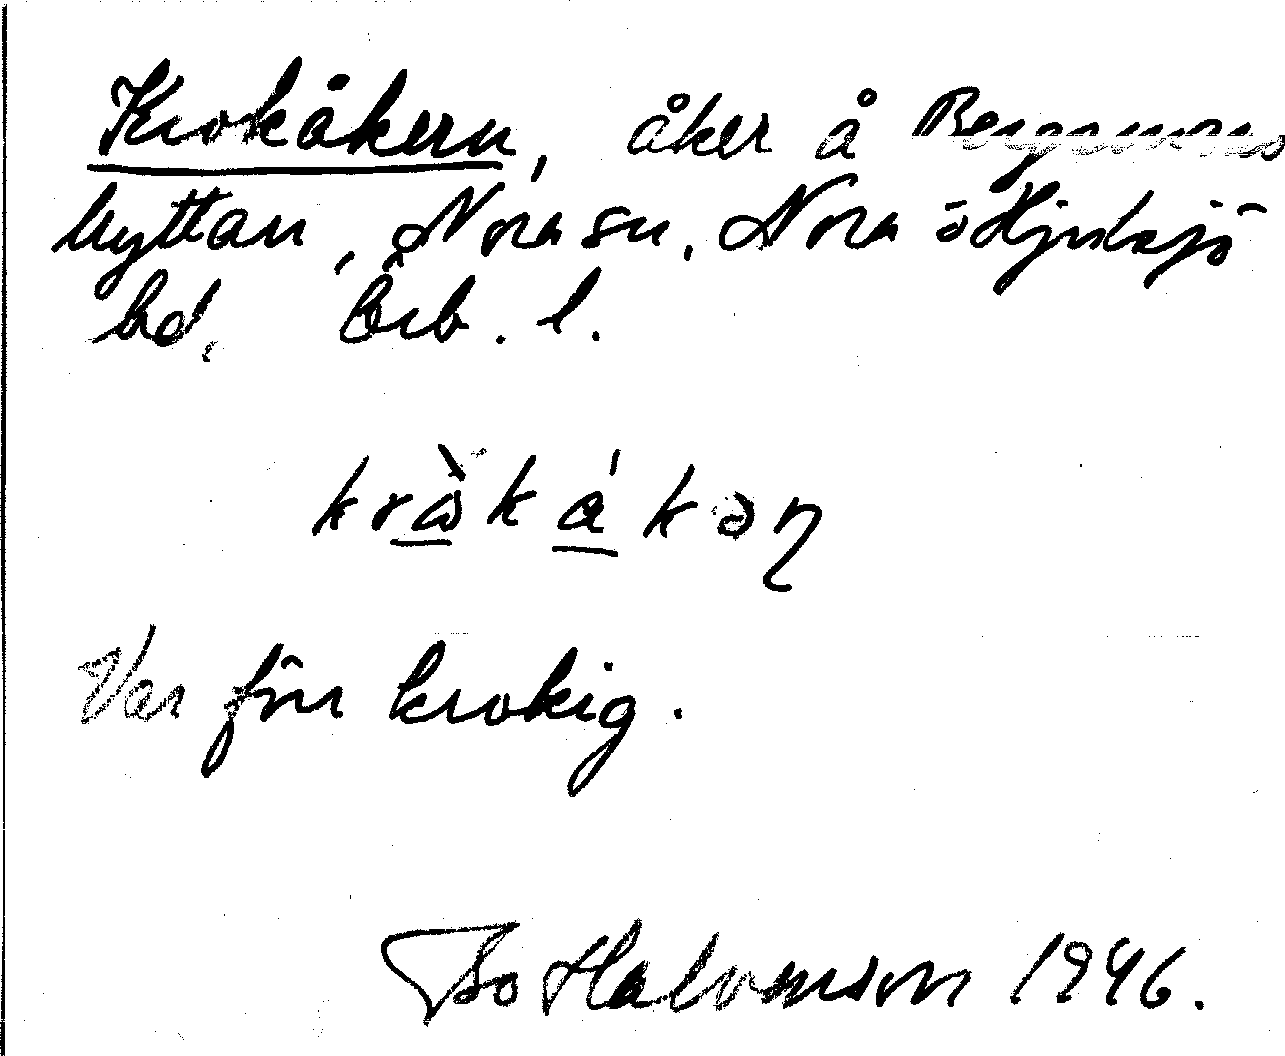 Krokåkern, åker å Bergsmans
hyttan, Nora sn, Nora ö Hjulsjö
bd, Örb. l.
krå̀kákəɳ
Var förr krokig.
Bo Halvarsson 1946.